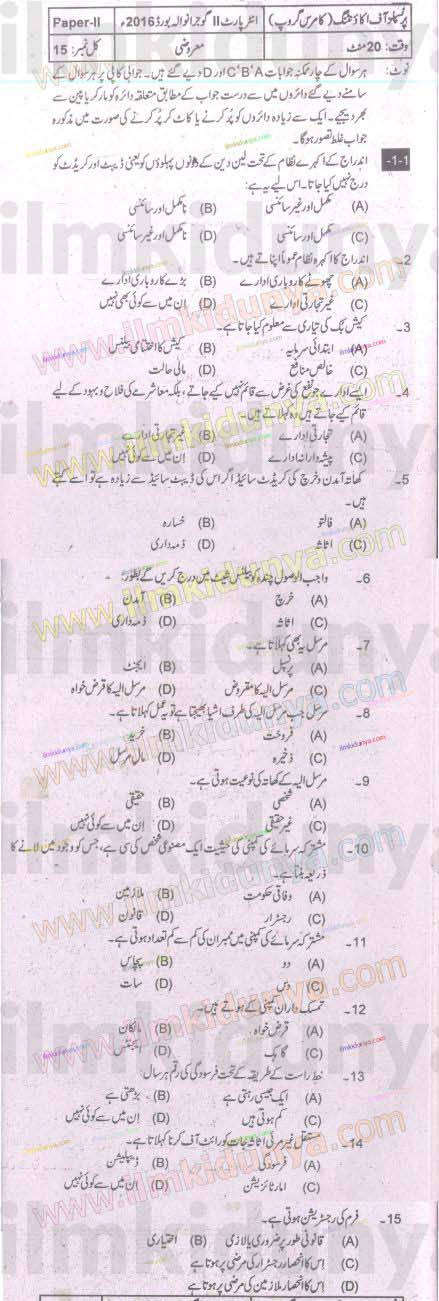 پرنسپلز آف اکاؤنٹنگ (کامرس گروپ) انٹر پارٹ II گوجرانوالہ بورڈ 2016ء Paper-II
وقت: 20 منٹ معروضی کل نمبر: 15
نوٹ: ہر سوال کے چار ممکنہ جوابات C'B'A اور D دیے گئے ہیں۔ جوابی کاپی پر ہر سوال کے
سامنے دیے گئے دائروں میں سے درست جواب کے مطابق متعلقہ دائرہ کو مارکر یا پین سے
بھر دیجیے۔ ایک سے زیادہ دائروں کو پُر کرنے یا کاٹ کر پُر کرنے کی صورت میں مذکورہ
جواب غلط تصور ہوگا۔
1-1- اندراج کے اکہرے نظام کے تحت لین دین کے دونوں پہلوؤں کو یعنی ڈیبٹ اور کریڈٹ کو
درج نہیں کیا جاتا۔ اس لیے یہ ہے:
(A) مکمل اور غیر سائنسی (B) نامکمل اور سائنسی
(C) مکمل اور سائنسی (D) نامکمل اور غیر سائنسی
2- اندراج کا اکہرہ نظام عموماً اپناتے ہیں۔
(A) چھوٹے کاروباری ادارے (B) بڑے کاروباری ادارے
(C) غیر تجارتی ادارے (D) اِن میں سے کوئی بھی نہیں
3- کیش بُک کی تیاری سے معلوم کیا جاتا ہے۔
(A) ابتدائی سرمایہ (B) کیش کا اختتامی بیلنس
(C) خالص منافع (D) مالی حالت
4- ایسے ادارے جو نفع کی غرض سے قائم نہیں کیے جاتے، بلکہ معاشرے کی فلاح و بہبود کے لیے
قائم کیے جاتے ہیں وہ کہلاتے ہیں۔
(A) تجارتی ادارے (B) غیر تجارتی ادارے
(C) پیشہ ورانہ ادارے (D) اِن میں سے کوئی نہیں
5- کھاتہ آمدن و خرچ کی کریڈٹ سائیڈ اگر اس کی ڈیبٹ سائیڈ سے زیادہ ہے تو اسے کہتے
ہیں۔
(A) فالتو (B) خسارہ
(C) اثاثہ (D) ذمہ داری
6- واجب الوصول چندہ کو بیلنس شیٹ میں درج کریں گے بطور:
(A) خرچ (B) آمدن
(C) اثاثہ (D) ذمہ داری
7- مرسل یہ بھی کہلاتا ہے۔
(A) پرنسپل (B) ایجنٹ
(C) مرسل الیہ کا مقروض (D) مرسل الیہ کا قرض خواہ
8- مرسل جب مرسل الیہ کی طرف اشیا بھیجتا ہے تو یہ عمل کہلاتا ہے۔
(A) فروخت (B) خرید
(C) ذخیرہ (D) مال مرسل
9- مرسل الیہ کے کھاتہ کی نوعیت ہوتی ہے۔
(A) شخصی (B) حقیقی
(C) غیر حقیقی (D) اِن میں سے کوئی نہیں
10- مشترکہ سرمائے کی کمپنی کی حیثیت ایک مصنوعی شخص کی سی ہے، جس کو وجود میں لانے کا
ذریعہ بنتا ہے۔
(A) وفاقی حکومت (B) ملازمین
(C) رجسٹرار (D) قانون
11- مشترکہ سرمائے کی کمپنی میں ممبران کی کم سے کم تعداد ہوتی ہے۔
(A) دو (B) پچاس
(C) دس (D) سات
12- تمسک داران کمپنی کے ہوتے ہیں۔
(A) قرض خواہ (B) مالکان
(C) گاہک (D) ایجنٹس
13- خط راست کے طریقہ کے تحت فرسودگی کی رقم ہر سال:
(A) ایک جیسی رہتی ہے (B) بڑھتی ہے
(C) کم ہوتی ہیں (D) اِن میں سے کوئی نہیں
14- مستقل غیر مرئی اثاثہ جات کو رائٹ آف کرنا کہلاتا ہے۔
(A) فرسودگی (B) ڈیپلیشن
(C) امارٹائزیشن (D) اِن میں سے کوئی نہیں
15- فرم کی رجسٹریشن ہوتی ہے۔
(A) قانونی طور پر ضروری یا لازمی (B) اختیاری
(C) اِس کا انحصار رجسٹرار کی مرضی پر ہوتا ہے
(D) اِس کا انحصار ملازمین کی مرضی پر ہوتا ہے
ilmkidunya
www.ilmkidunya.com